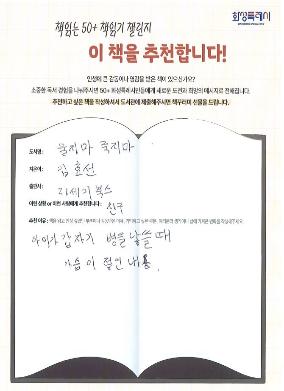 화성특례시
책읽는 50+ 책읽기 챌린지
이 책을 추천합니다!
인생에 큰 감동이나 영감을 받은 책이 있으신가요?
소중한 독서 경험을 나눠주시면 50+ 화성특례시민들에게 새로운 도전과 희망의 메시지로 전해집니다.
추천하고 싶은 책을 작성하셔서 도서관에 제출해주시면 책꾸러미 선물을 드립니다.
도서명: 울지마 죽지마
지은이: 김호선
출판사: 21세기북스
어떤 상황 or 어떤 사람에게 추천합니다: 친구
추천 이유:
아이가 갑자기 병을 낳을때
가슴이 절인 내용